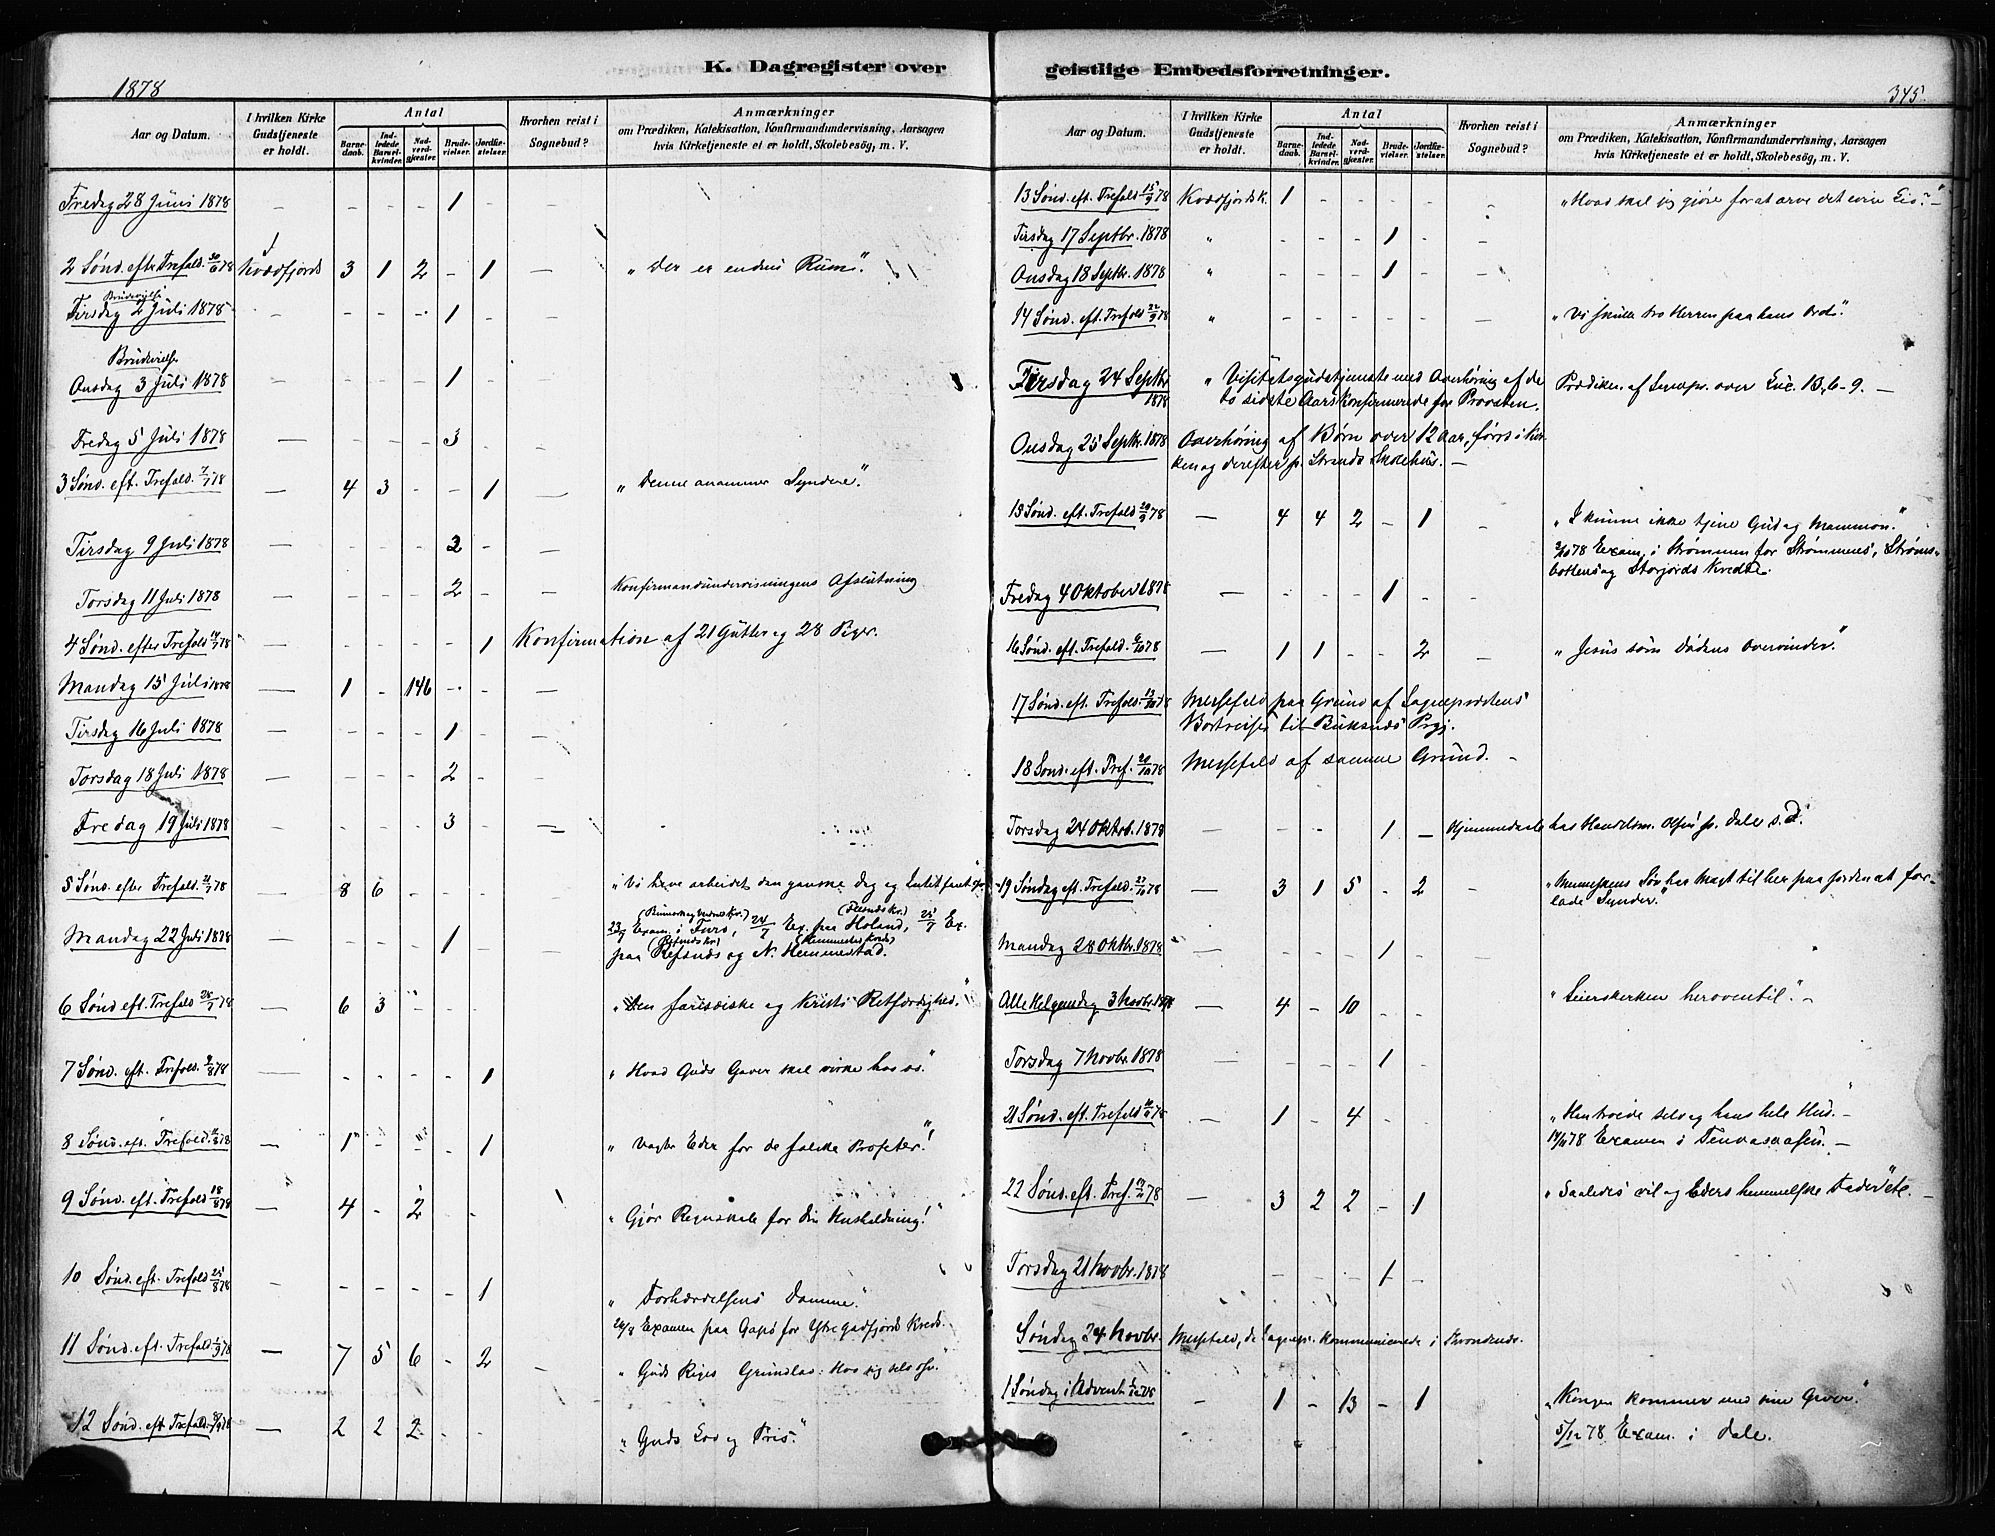 K. Dagregister over geistlige Embedsforretninger.
1878
345.
Aar og Datum.
I hvilken Kirke Gudstjeneste er holdt.
Antal
Barnedaab.
Indledede Barselkvinder.
Nadverdgjester.
Brudevielser.
Jordfæstelser.
Hvorhen reist i Sognebud?
Anmærkninger
om Prædiken, Katekisation, Konfirmandundervisning, Aarsagen
hvis Kirketjeneste et er holdt, Skolebesög, m. V.
Fredag 28 Juni 1878 - - - - 1 - -
2 Sønd. efter Trefald. 30/6 78 Kvædfjords 3 1 2 - 1 — "Der er endnu Rum".
Brudevielse
Tirsdag 2 Juli 1878 - - - - 1 - -
Brudevielse
Onsdag 3 Juli 1878 - - - - 1 - -
Fredag 5 Juli 1878 — - - - 3 - -
3 Sønd. eft. Trefald. 7/7 78 — 4 3 - - 1 — "Denne anammer Syndere".
Tirsdag 9 Juli 1878 — - - - 2 - —
Torsdag 11 Juli 1878 - - - 2 - - Konfirmandundervisningens Afslutning
4 Sønd. efter Trefald 14/7 78 — - - - - 1 Konfirmation af 21 Gutter og 28 Piger.
Mandag 15 Juli 1878 — 1 - 146 - - —
Tirsdag 16 Juli 1878 — - - - 1 - -
Torsdag 18 Juli 1878 — - - - 2 - -
Fredag 19 Juli 1878 — - - - 3 - —
5 Sønd. efter Trefald. 21/7 78 — 8 6 - - - - "Vi have arbeidet den ganske Dag og Intet faaet"
Mandag 22 Juli 1878 — - - - 1 - — 23/7 Exam. i , 24/7 Ex. paa Holand, 25/7 Ex.
paa Refsnes og N. Hemmestad.
6 Sønd. eft. Trefald 28/7 78 — 6 3 - - - "Den farisæiske og Kristi Retfærdighed."
7 Sønd. eft. Trefold. 4/8 78 — - - - - 1 "Hvad Guds Gaver skal virke hos os."
8 Sønd. eft. Trefold. 11/8 78 — 1 - - - 1 "Vogter Eder for de falske Profeter!"
9 Sønd. eft. Trefold 18/8 78 — 4 - 2 - - "Gjør Regnskab for din Husholdning!"
10 Sønd. eft. Trefold 25/8 78 - - - - - 1 "Forhærdelsens Domme."
Examen paa Gapø for Kreds.
11 Sønd. eft. Trefald 1/9 78 — 7 5 6 - 2 - "Guds Riges Grundlov: Hvo sig selv osv."
12 Sønd. eft Trefald. 8/9 78 — 2 2 2 - - "Guds Lov og Pris."
Aar og Datum.
I hvilken Kirke Gudstjeneste er holdt.
Antal
Barnedaab.
Indledede Barselkvinder.
Nadverdgjester.
Brudevielser.
Jordfæstelser.
Hvorhen reist i Sognebud?
Anmærkninger
om Prædiken, Katekisation, Konfirmandundervisning, Aarsagen
hvis Kirketjeneste et er holdt, Skolebesög, m. V.
13 Sønd. eft. Trefald 15/9 78 Kvædfjords K. 1 - - - - - "Hvad skal jeg gjøre for at arve det evige Liv?" -
Tirsdag 17 Septbr. 1878 " - - - 1 - -
Onsdag 18 Septbr. 1878 " - - - 1 - -
14 Sønd. eft. Trefold 22/9 78 " - - - - - — "Vi skulle tro Herren paa hans Ord".
Tirsdag 24 Septbr 1878 " Visitatsgudstjeneste med Overhøring af de Prædiken af Sognepr. over Luc. 13, 6-9. —
to sidste Aars Konfirmerede for Provsten.
Onsdag 25 Septbr. 1878 Overhøring af Børn over 12 Aar, først i Kir-
ken og derefter p. Strands Skolehus. —
15 Sønd. eft. Trefald 29/9 78 — 4 4 2 - 1 - "I kunne ikke tjene Gud og Mammon."
3/10 78 Exam. i Strømmen for Strømmens, Strøms-
bottens og Storjords Kredse.
Fredag 4 Oktober 1878 — - - - 1 - -
16 Sønd. eft. Trefald. 6/10 78 — 1 1 - - 2 — "Jesus som Dødens Overvinder."
17 Sønd. eft. Trefald. 13/10 78 Messefald paa Grund af Sognepræstens
Bortreise til Buksnes Prgj.
18 Sønd. eft. Tref. 20/10 78 Messefald af samme Grund. -
Torsdag 24 Oktbr. 1878 — - - - 1 — Hjemmedaab hos Handelsm. Olsen p. Dale s. d.
19 Søndag eft. Trefald. 27/10 78 — 3 1 5 - 2 - "Menneskens Søn har Magt til her paa Jorden at for-
lade Synder."
Mandag 28 Oktbr. 1878 — 1 -
Alle Helgensdag 3 Novbr. 1878 — 4 - 10 - - "Seierskirken heroventil". -
Torsdag 7 Novbr. 1878 — - - - 1 -
21 Sønd. eft. Trefold 10/11 78 — 1 - 4 - - "Han troede selv og hans hele Hus." -
14/11 78 Examen i . —
22 Sønd. eft. Tref. 17/11 78 — 3 2 2 - 1 "Saaledes vil og Eders himmelske Fader" etc. -
Torsdag 21 Novbr. 1878 - - - 1 -
Søndag 24 Novbr. Messefald, da Sognepr. kommunicerede i Trondenes.
1 Søndag i Advent 1/12 78 - 1 - 13 - 1 "Kongen kommer med sine Gaver".
5/12 78 Exam. i Dale.